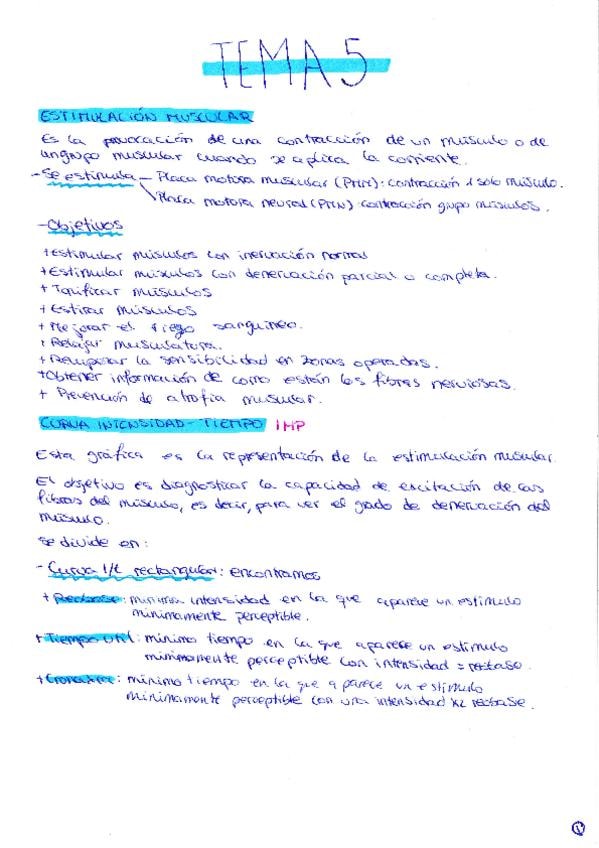 TEMA 5
ESTIMULACIÓN MUSCULAR
Es la provocación de una contracción de un músculo o de
un grupo muscular cuando se aplica la corriente.
- Se estimula - Placa motora muscular (PMM): contracción 1 solo músculo.
Placa motora neural (PMN): contracción grupo músculos.
- Objetivos
+ Estimular músculos con inervación normal
+ Estimular músculos con denervación parcial o completa.
+ Tonificar músculos
+ Estirar músculos
+ Mejorar el riego sanguíneo.
+ Relajar musculatura.
+ Recuperar la sensibilidad en zonas operadas.
+ Obtener información de como están las fibras nerviosas.
+ Prevención de atrofia muscular.
CURVA INTENSIDAD - TIEMPO IMP
Esta gráfica es la representación de la estimulación muscular.
El objetivo es diagnosticar la capacidad de excitación de las
fibras del músculo, es decir, para ver el grado de denervación del
músculo.
Se divide en:
- Curva I/t rectangular: encontramos
+ Reobase: mínima intensidad en la que aparece un estímulo
mínimamente perceptible.
+ Tiempo útil: mínimo tiempo en la que aparece un estímulo
mínimamente perceptible con intensidad = reobase.
+ Cronaxia: mínimo tiempo en la que aparece un estímulo
mínimamente perceptible con una intensidad x2 reobase.
1